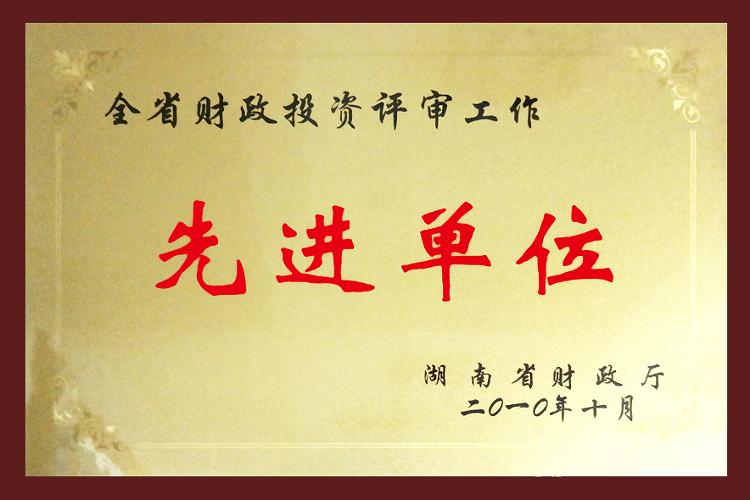 全省财政投资评审工作
先进单位
湖南省财政厅
二〇一〇年十月